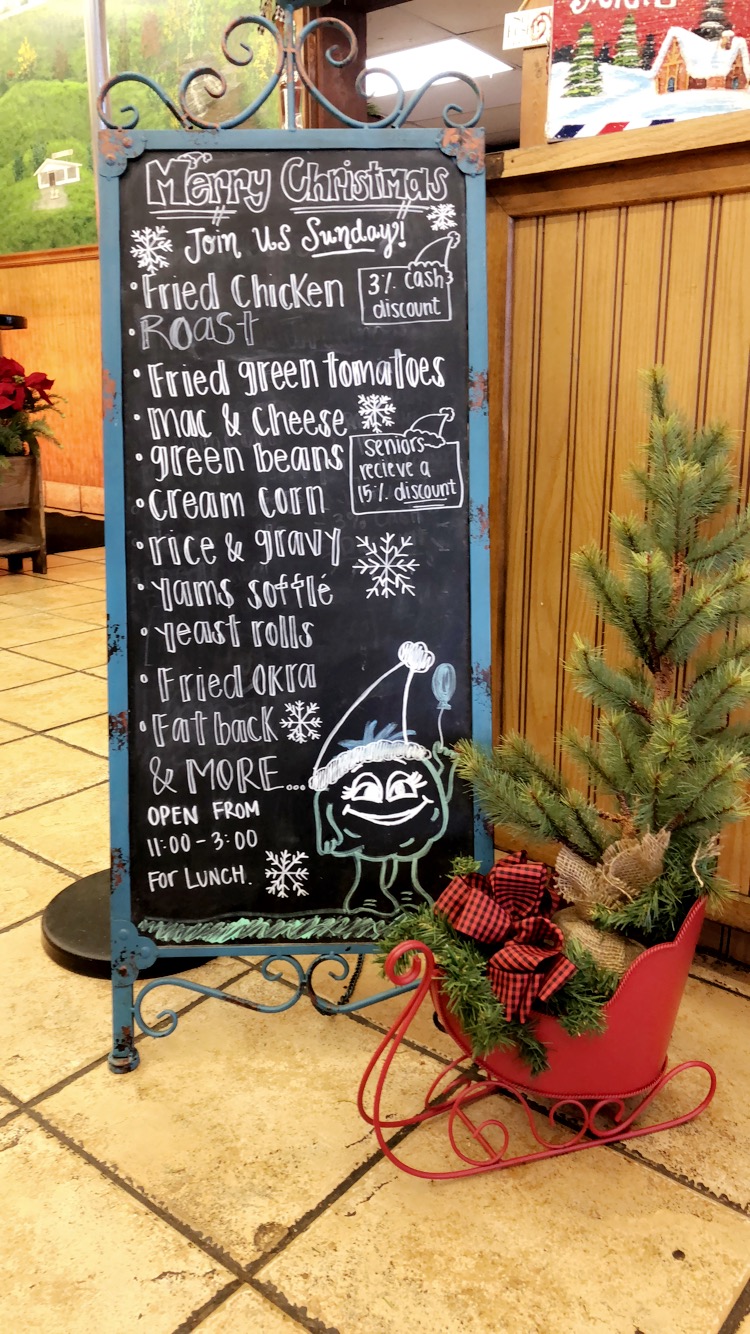 Merry Christmas
Join us Sunday!!
• Fried Chicken
3% cash
discount
• Roast
• Fried green tomatoes
• mac & cheese
• green beans
seniors
recieve a
15% discount
• cream corn
• rice & gravy
• yams sofflé
• yeast rolls
• Fried okra
• Fat back
& MORE...
OPEN FROM
11:00 - 3:00
FOR LUNCH.